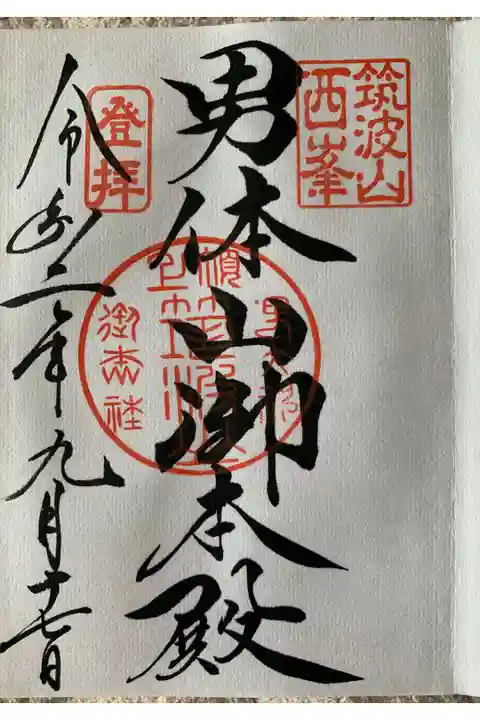 筑波山
西峯
男体山御本殿
登拝
令和二年九月十七日
御本社